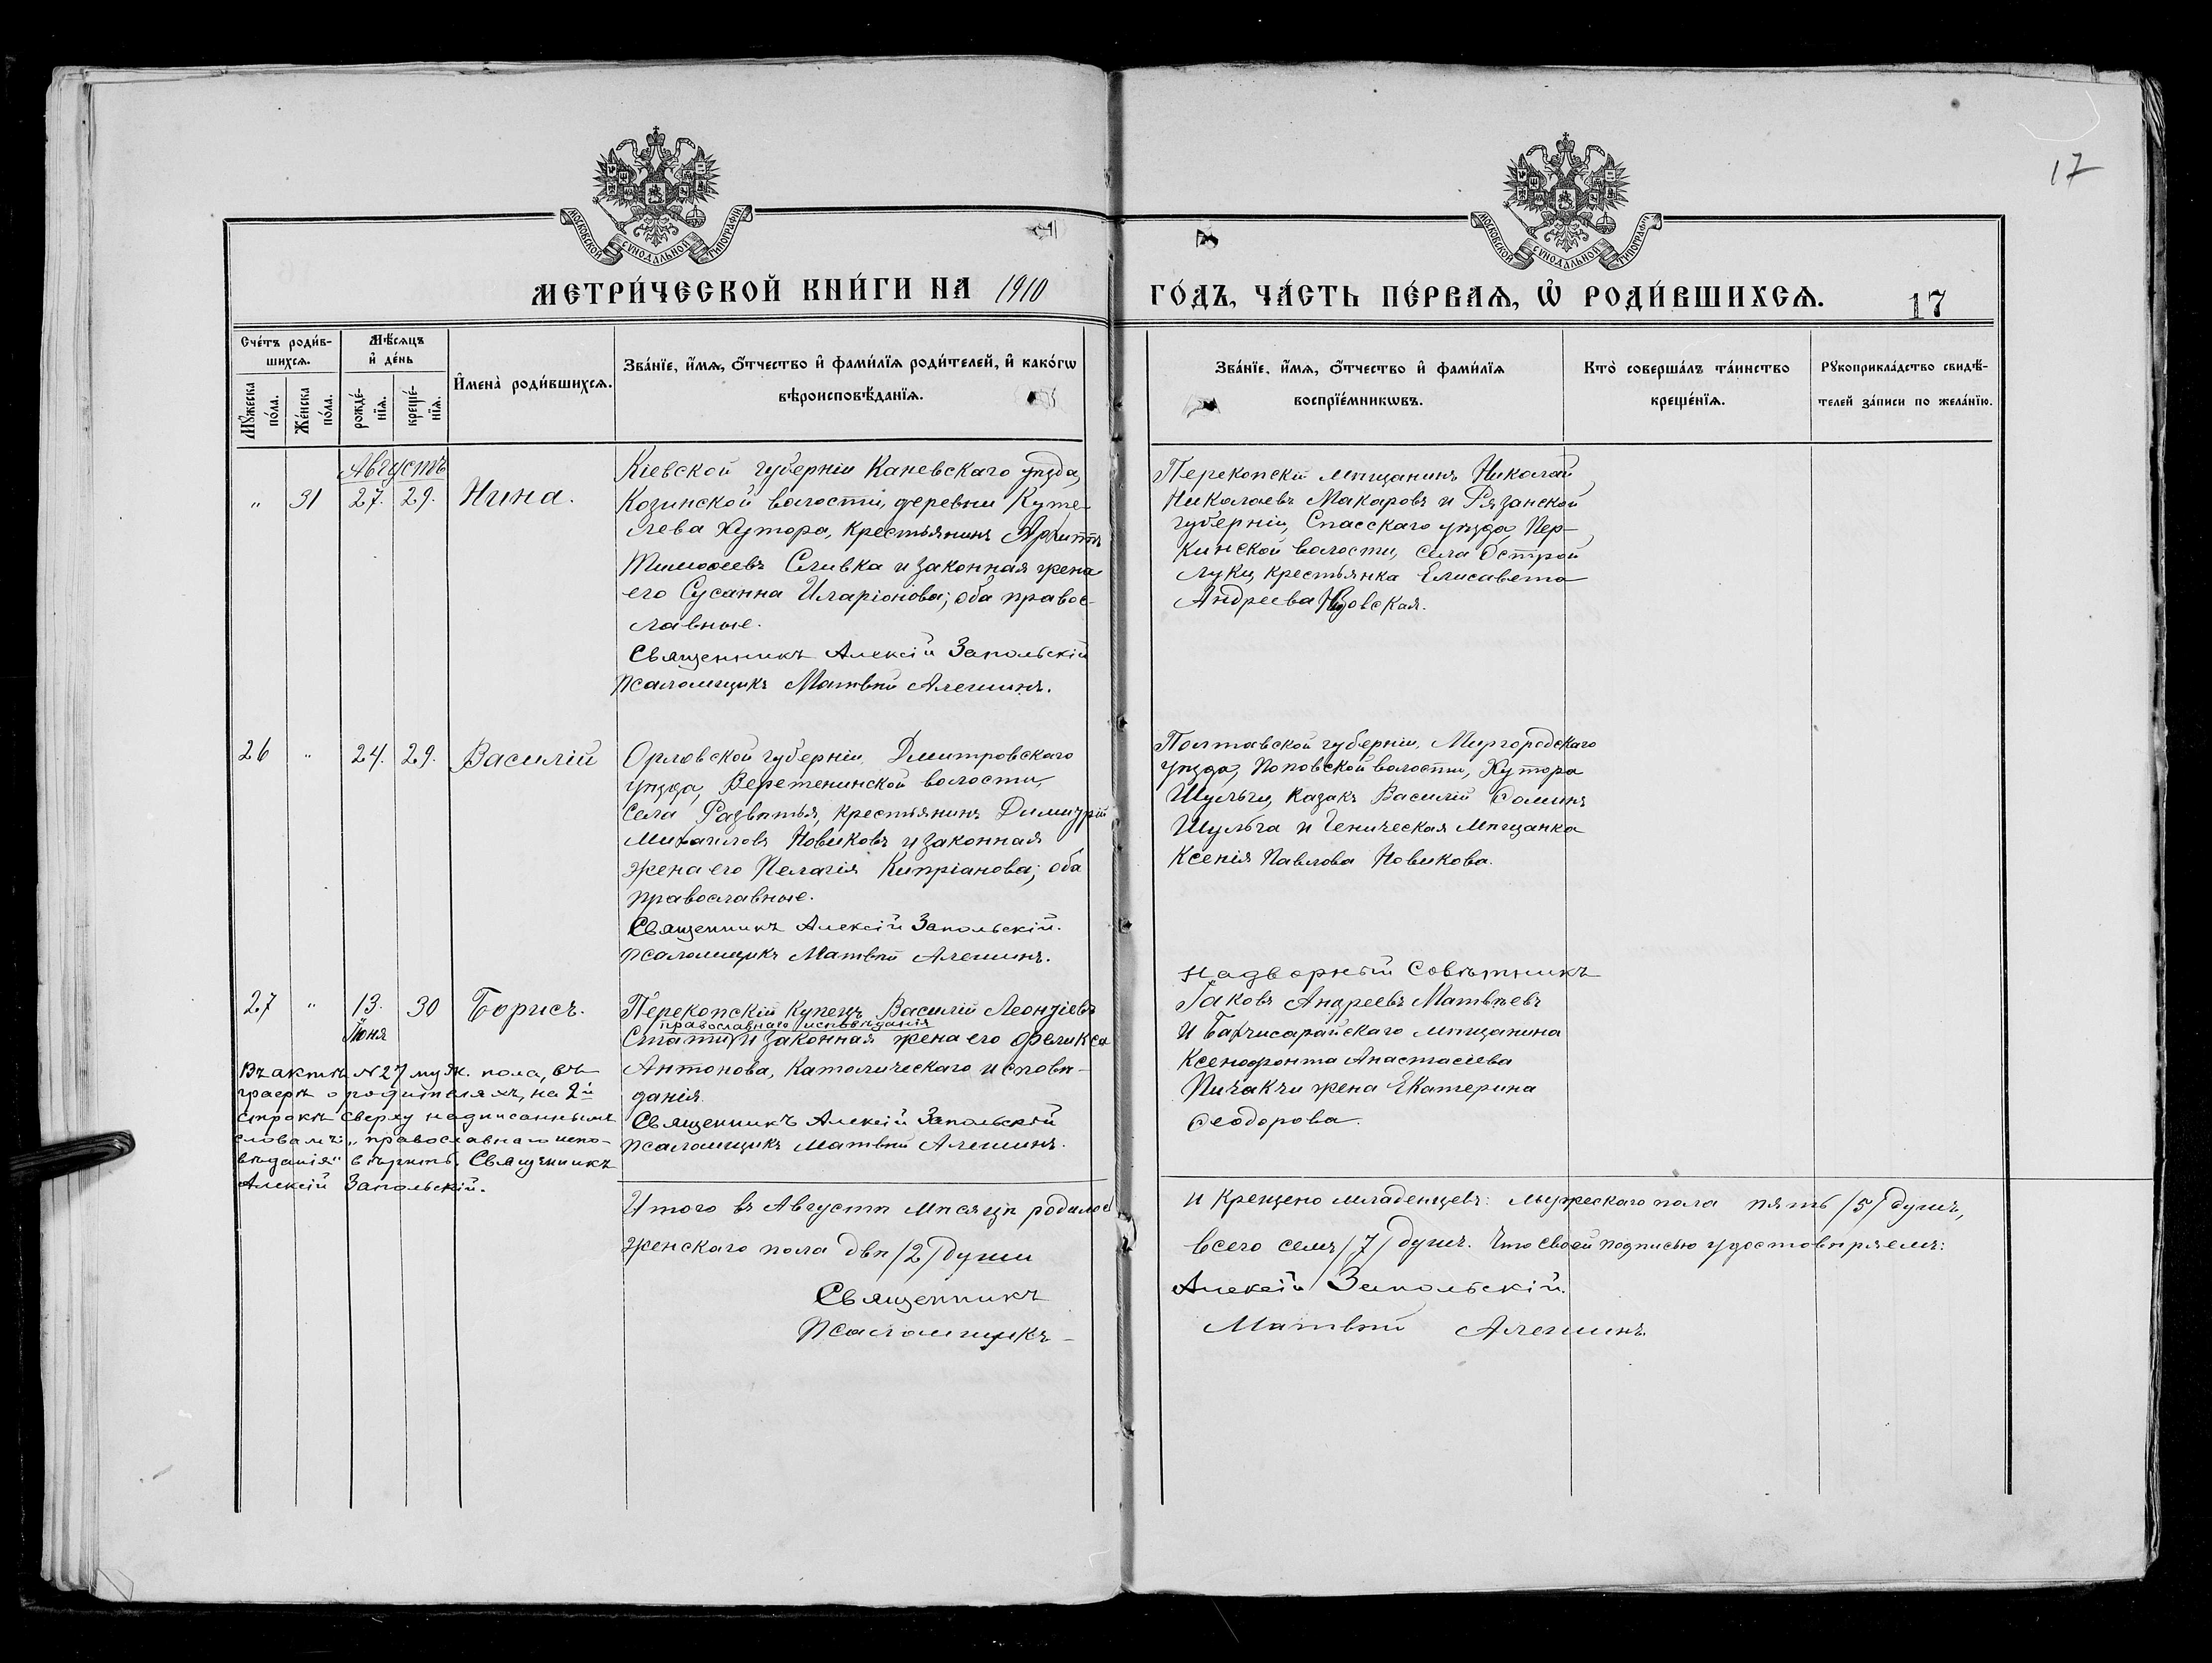 17
МОСКОВСКОЙ СѴНОДАЛЬНОЙ ТИПОГРАФІИ
МОСКОВСКОЙ СѴНОДАЛЬНОЙ ТИПОГРАФІИ
МЕТРИ́ЧЕСКОЙ КНИ́ГИ НА 1910 ГО́ДЪ, ЧА́СТЬ ПЕ́РВАѦ, Ѡ РОДИ́ВШИХСѦ. 17
Сче́тъ роди́в-
шихсѧ.
Мꙋ́жеска
по́ла.
Же́нска
по́ла.
Мѣ́сѧцъ
и҆ де́нь
рожде́-
нїѧ.
креще́-
нїѧ.
И҆мена̀ роди́вшихсѧ.
Зва́нїе, и҆́мѧ, ѻ҆́тчество и҆ фами́лїѧ роди́телей, и҆ како́гѡ
вѣроисповѣ́данїѧ.
Зва́нїе, и҆́мѧ, ѻ҆́тчество и҆ фами́лїѧ
воспрїе́мникѡвъ.
Кто̀ соверша́лъ та́инство
креще́нїѧ.
Рꙋкоприкла́дство свидѣ́-
телей за́писи по жела́нїю.
Августъ
" 31 27. 29. Нина.
Кіевской губерніи Каневскаго уѣзда,
Козинской волости, деревни Куте-
лева Хутора, крестьянинъ Архиппъ
Тимоѳеевъ Сливка и законная жена
его Сусанна Иларіонова; оба правос-
лавные.
Священникъ Алексій Запольскій
Псаломщикъ Матвѣй Алешинъ.
Перекопскій мѣщанинъ Николай
Николаевъ Макаровъ и Рязанской
губерніи, Спасскаго уѣзда, Пер-
кинской волости, села Острой
Луки, крестьянка Елисавета
Андреева
26 " 24. 29. Василій
Орловской губерніи, Дмитровскаго
уѣзда, Веретенинской волости,
села Развѣтья, крестьянинъ Димитрій
Михаиловъ Новиковъ и законная
жена его Пелагія Кипріанова; оба
православные.
Священникъ Алексій Запольскій.
Псаломщикъ Матвѣй Алешинъ.
Полтавской губерніи, Миргородскаго
уѣзда, Поповской волости, Хутора
Шульги, казакъ Василій Ѳоминъ
Шульга и Геническая мѣщанка
Ксенія Павлова Новикова.
27 " 13. 30 Борисъ.
Іюня
Перекопскій Купецъ Василій Леонтіевъ
православнаго исповѣданія
и законная жена его Феликса
Антонова, Католическаго исповѣ-
данія.
Священникъ Алексій Запольскій
Псаломщикъ Матвѣй Алешинъ.
Надворный Совѣтникъ
Іаковъ Андреевъ Матвѣевъ
и Бахчисарайскаго мѣщанина
Ксенофонта Анастасіева
Пичакчи жена Екатерина
Ѳеодорова.
Въ актѣ №27 муж. пола, въ
графѣ о родителяхъ, на 2й
строкѣ сверху надписаннымъ
словамъ: „православнаго испо-
вѣданія" вѣрить. Священникъ
Алексій Запольскій.
Итого въ Августѣ мѣсяцѣ родилось и крещено младенцевъ: мужескаго пола пять /5/ душъ,
женскаго пола двѣ /2/ души всего семь /7/ душъ. Что своей подписью удостовѣряемъ:
Священникъ Алексій Запольскій.
Псаломщикъ – Матвѣй Алешинъ.